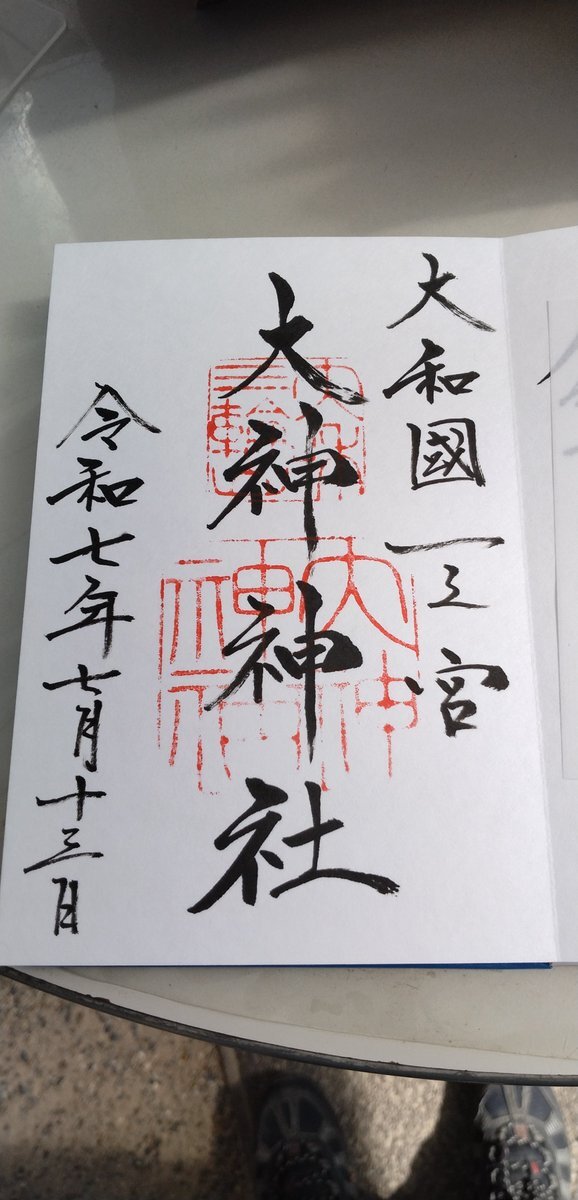 大和國一之宮
大神神社
令和七年七月十三日